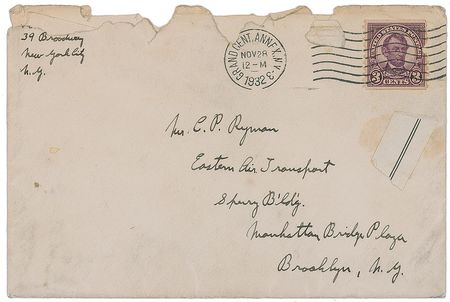 39 Broadway
New York City
N.Y.
GRAND CENT. ANNEX, N.Y.
NOV 28
12-M
1932
3
UNITED STATES POSTAGE
3 CENTS 3
Mr. C. P. Ryman
Eastern Air Transport
Sperry B'ld'g.
Manhattan Bridge Plaza
Brooklyn, N.Y.